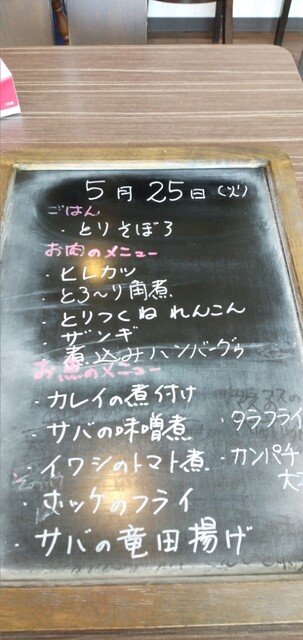 5月25日(火)
ごはん
・とりそぼろ
お肉のメニュー
・ヒレカツ
・とろ〜り角煮
・とりつくねれんこん
・ザンギ
・煮込みハンバーグ
お魚のメニュー
・カレイの煮付け
・サバの味噌煮
・イワシのトマト煮
・ホッケのフライ
・サバの竜田揚げ
・タラフライ
・カンパチ